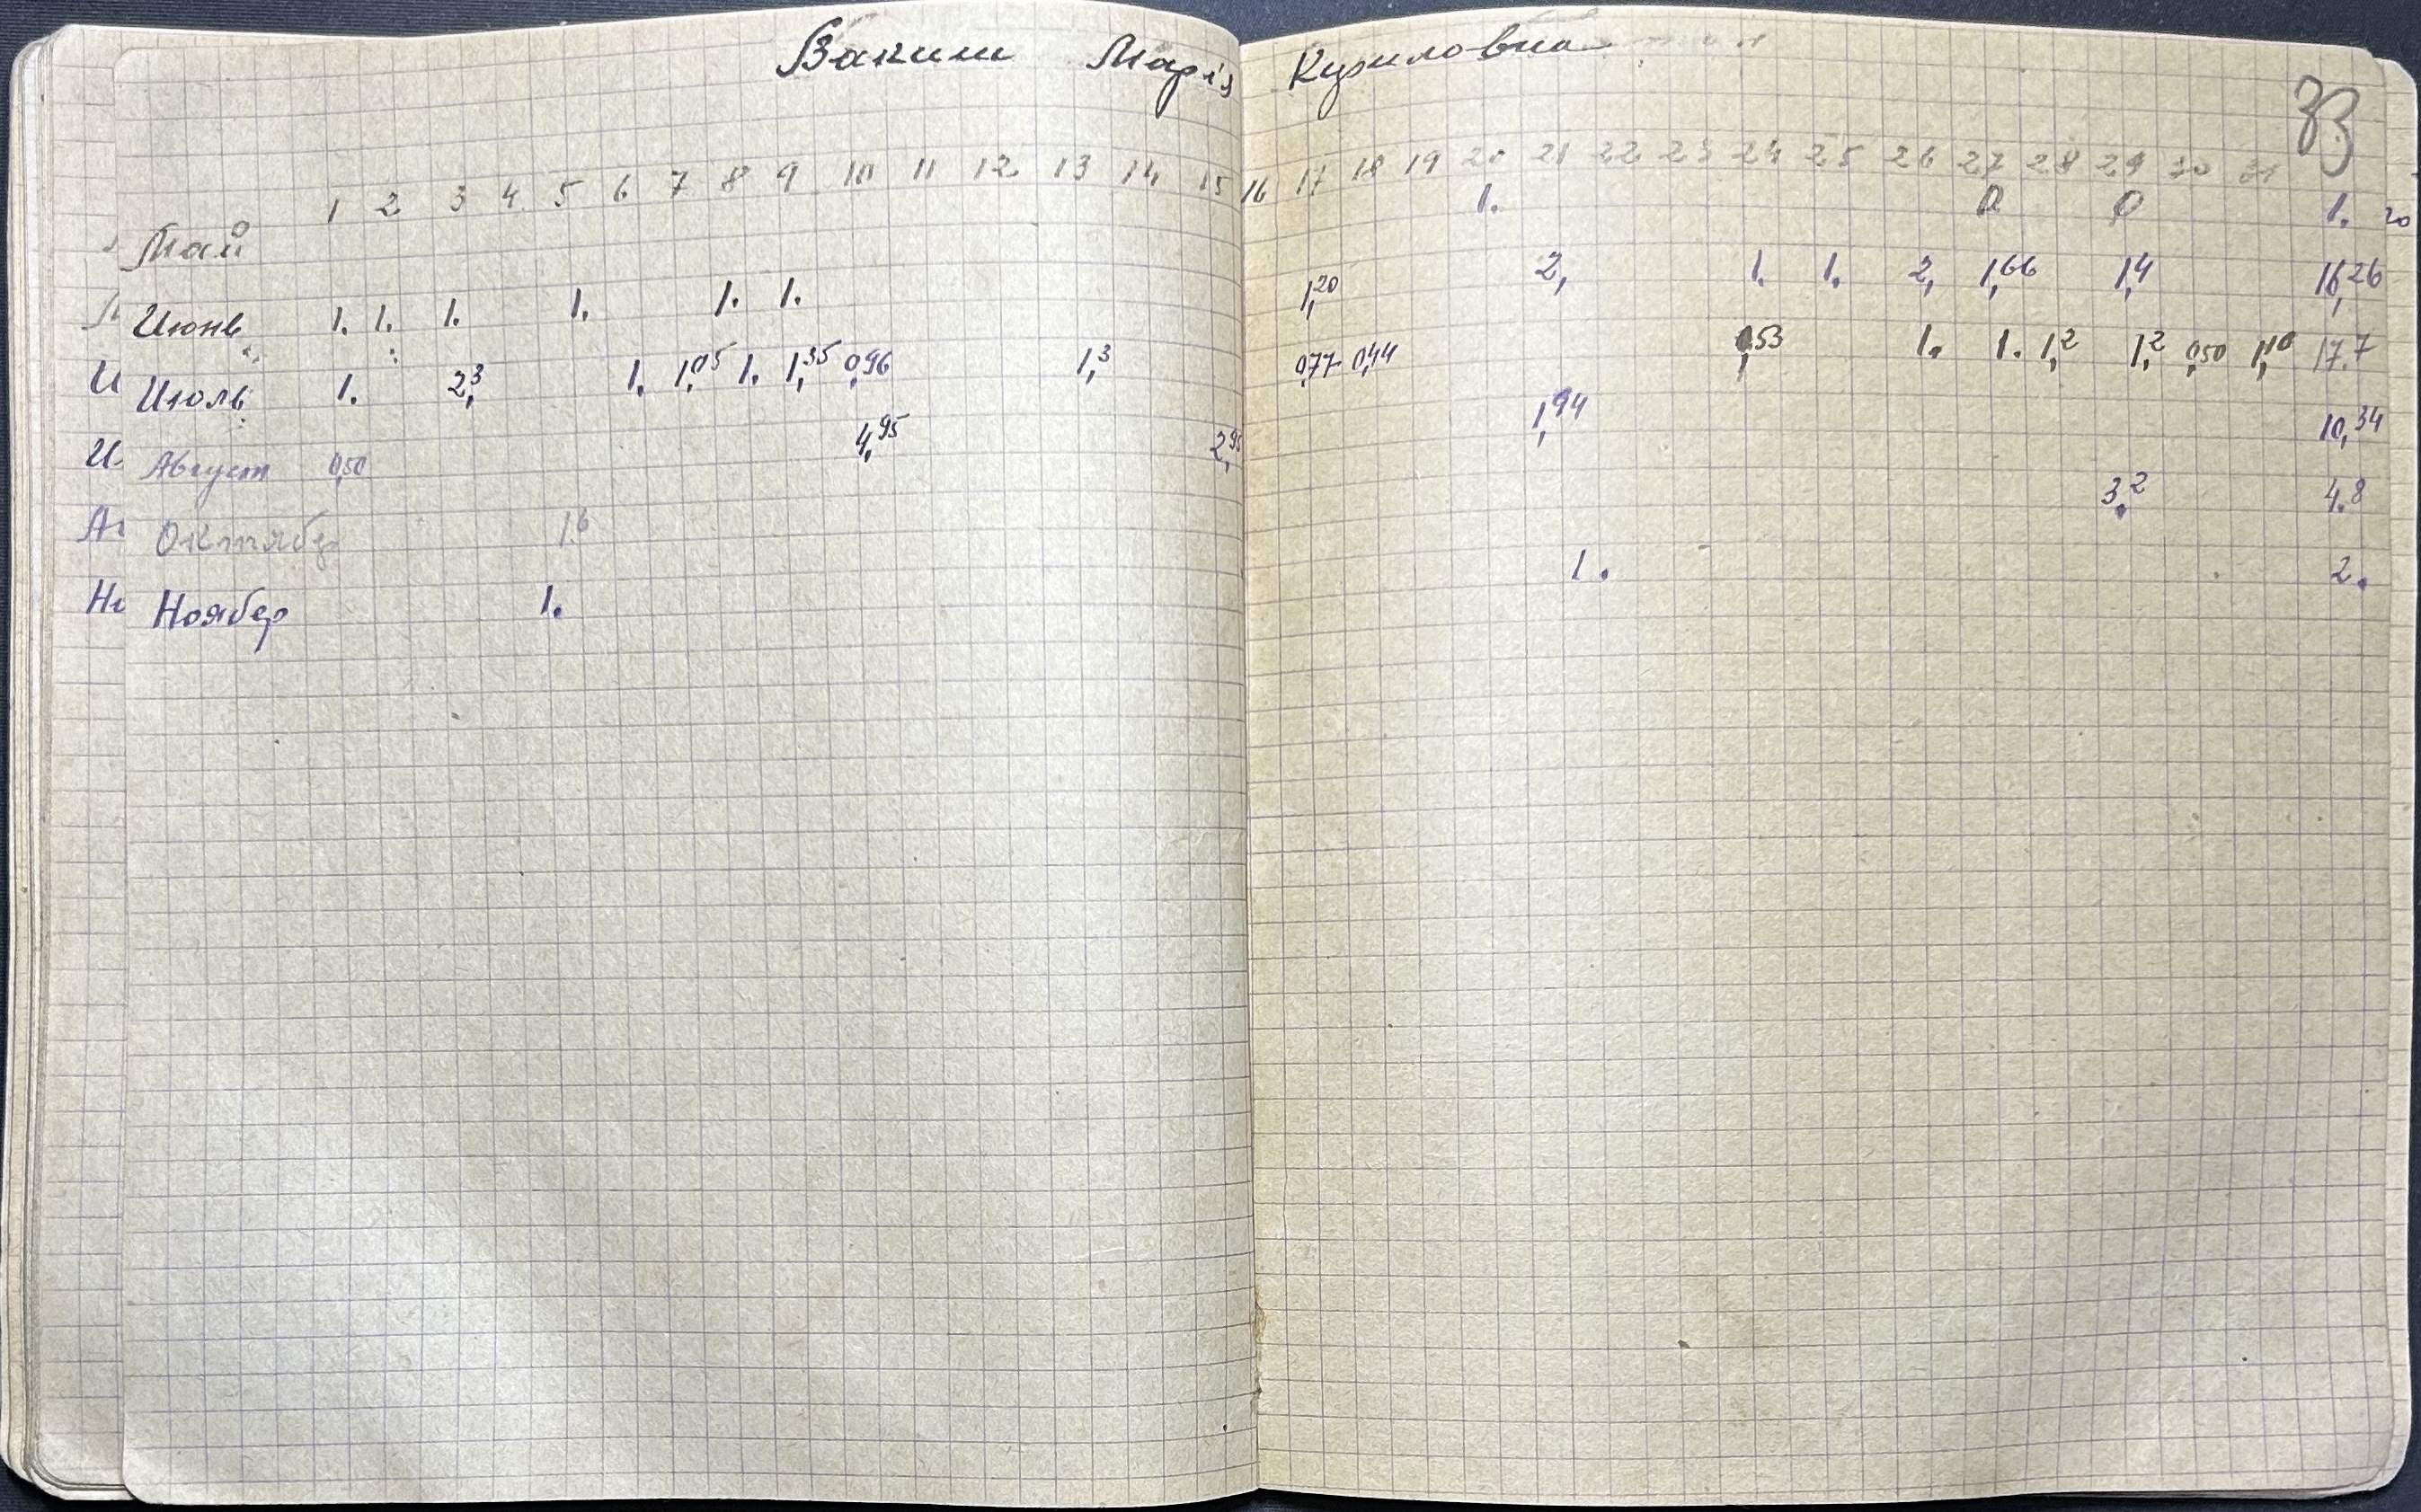 Вакит Марія Кузиловна
33
1 2 3 4 5 6 7 8 9 10 11 12 13 14 15 16 17 18 19 20 21 22 23 24 25 26 27 28 29 30 31
Май 1. 0 0 1. 20
Июнь 1. 1. 1. 1. 1. 1. 1,20 2, 1. 1. 2, 1,66 1,4 16,26
И Июль 1. 2,3 1. 1,05 1. 1,35 0,96 1,3 0,77 0,44 0,53 1. 1. 1,2 1,2 0,50 1,10 17.7
И Август 0,50 4,95 2,95 1,94 10,34
Ав Октябер 1,6 3,2 4.8
Но Ноябер 1. 1. 2.